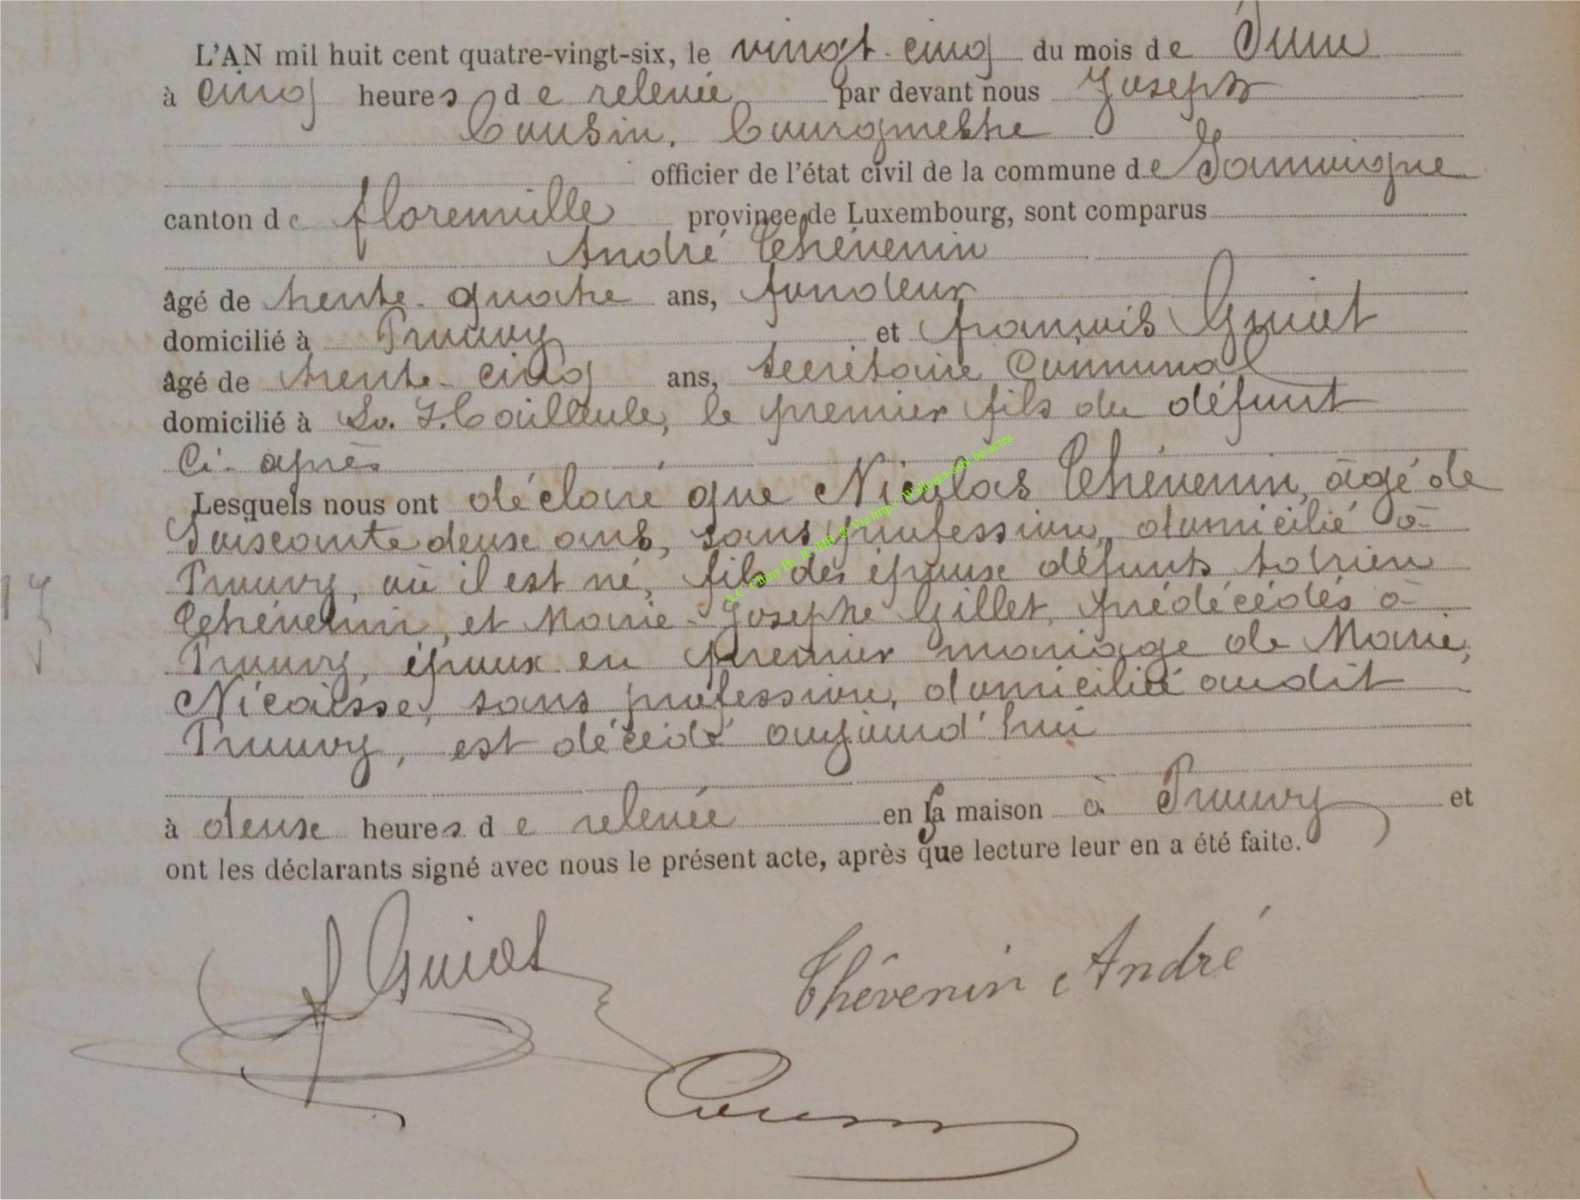 L'AN mil huit cent quatre-vingt-six, le vingt-cinq du mois de Juin
à cinq heures de relevée par devant nous Joseph
Cousin, bourgmestre
officier de l'état civil de la commune de Jamoigne
canton de florenville province de Luxembourg, sont comparus
André Thévenin
âgé de trente-quatre ans, fondeur
domicilié à Prouvy et françois Guiot
âgé de trente-cinq ans, secrétaire Communal
domicilié à le premier fils du défunt
Ci-après
Lesquels nous ont déclaré que Nicolas Thévenin, âgé de
Soixante deux ans, sans profession, domicilié à
Prouvy, où il est né, fils des époux défunts
Thévenin, et Marie-Josephe Gillet, prédécédés à
Prouvy, époux en premier mariage de Marie,
Nicaisse, sans profession, domiciliée audit
Prouvy, est décédé aujourd'hui
à deux heures de relevée en sa maison à Prouvy et
ont les déclarants signé avec nous le présent acte, après que lecture leur en a été faite.
Guiot
Thévenin André
Cousin